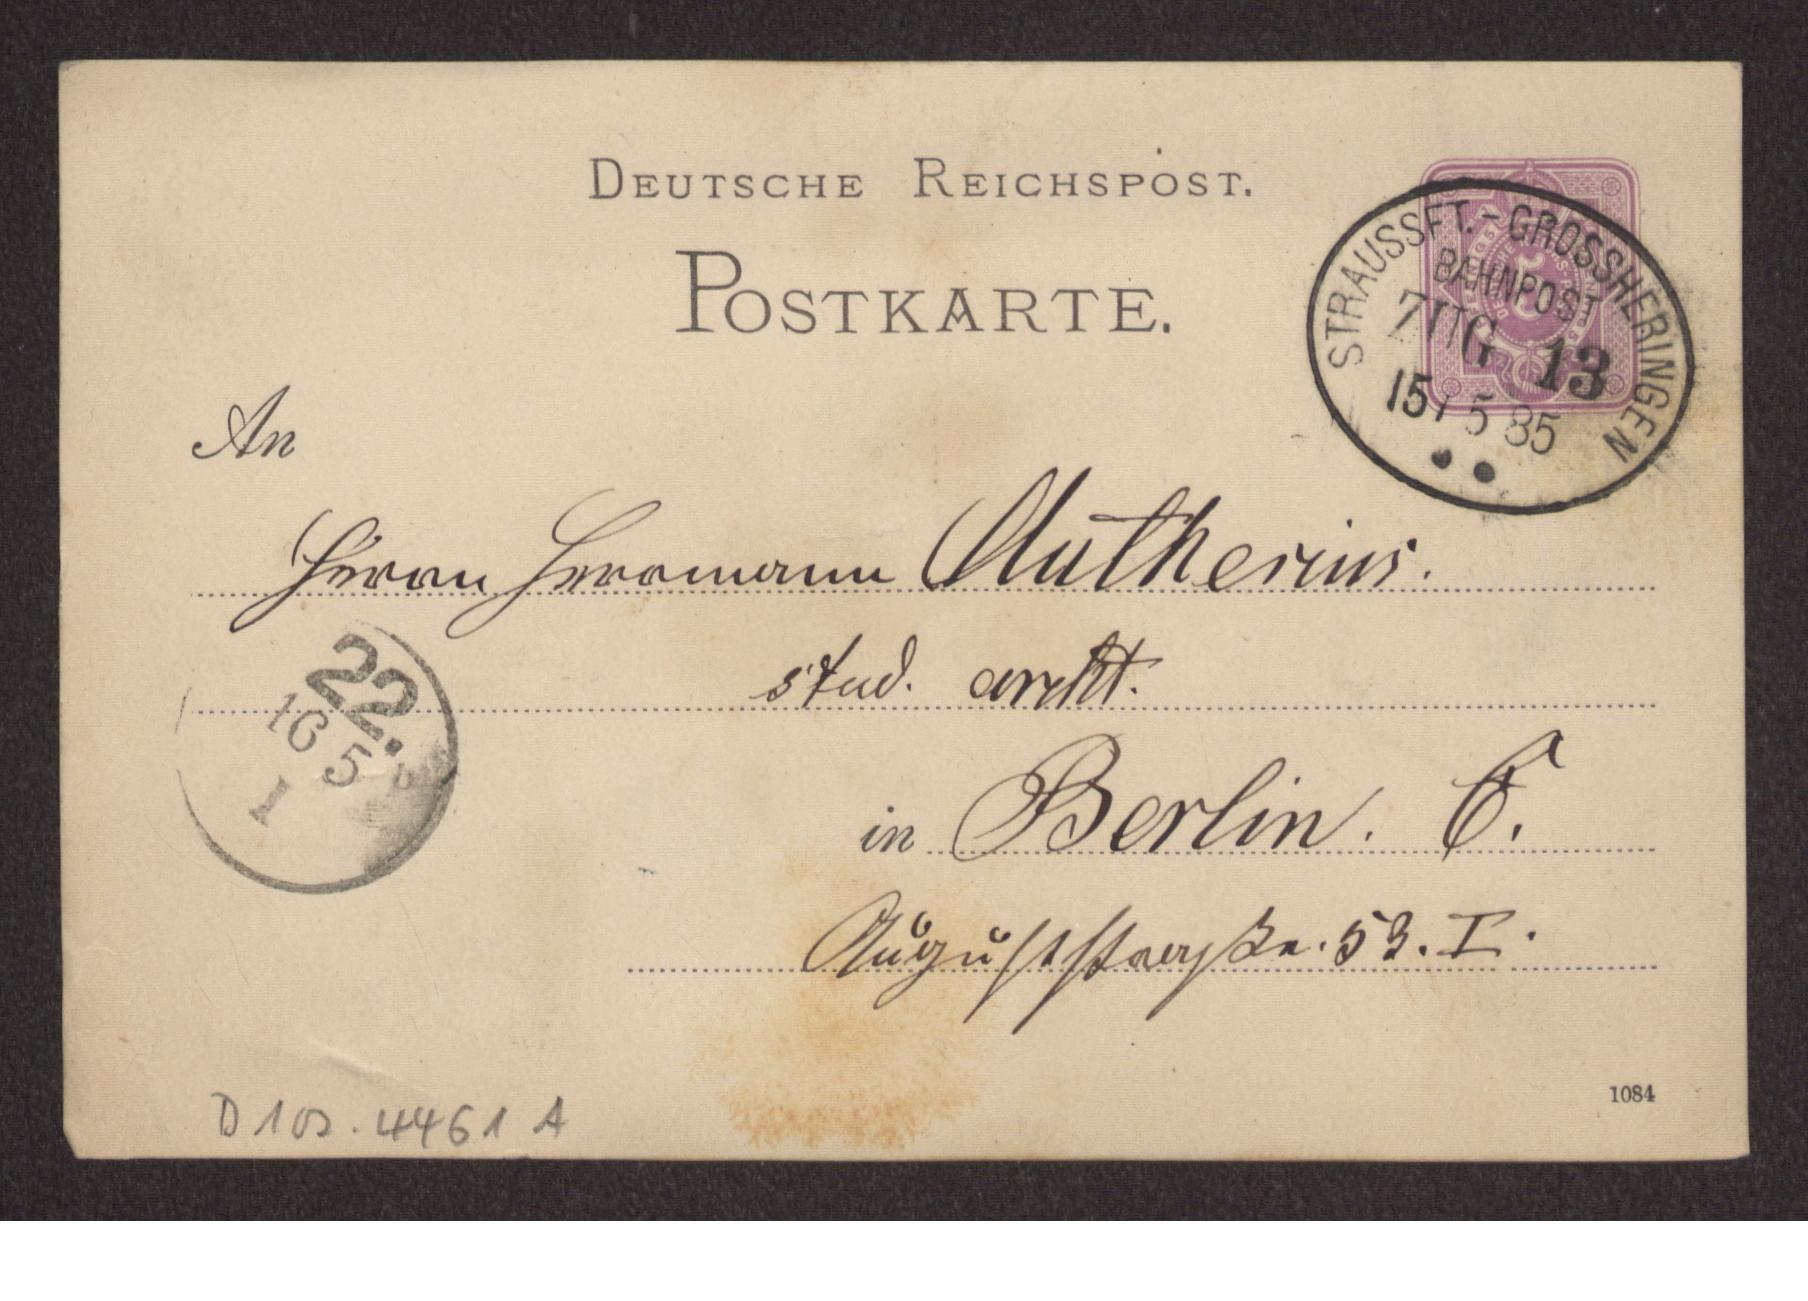 DEUTSCHE REICHSPOST.
POSTKARTE.
STRAUSSFT.-GROSSHERINGEN
BAHNPOST
ZUG 13
15 5 85
An
Herrn Herrmann Muthesius.
stud. archt.
22.
16 5
I
in Berlin. C.
Auguststraße. 53. I.
1084
D 102-4461 A